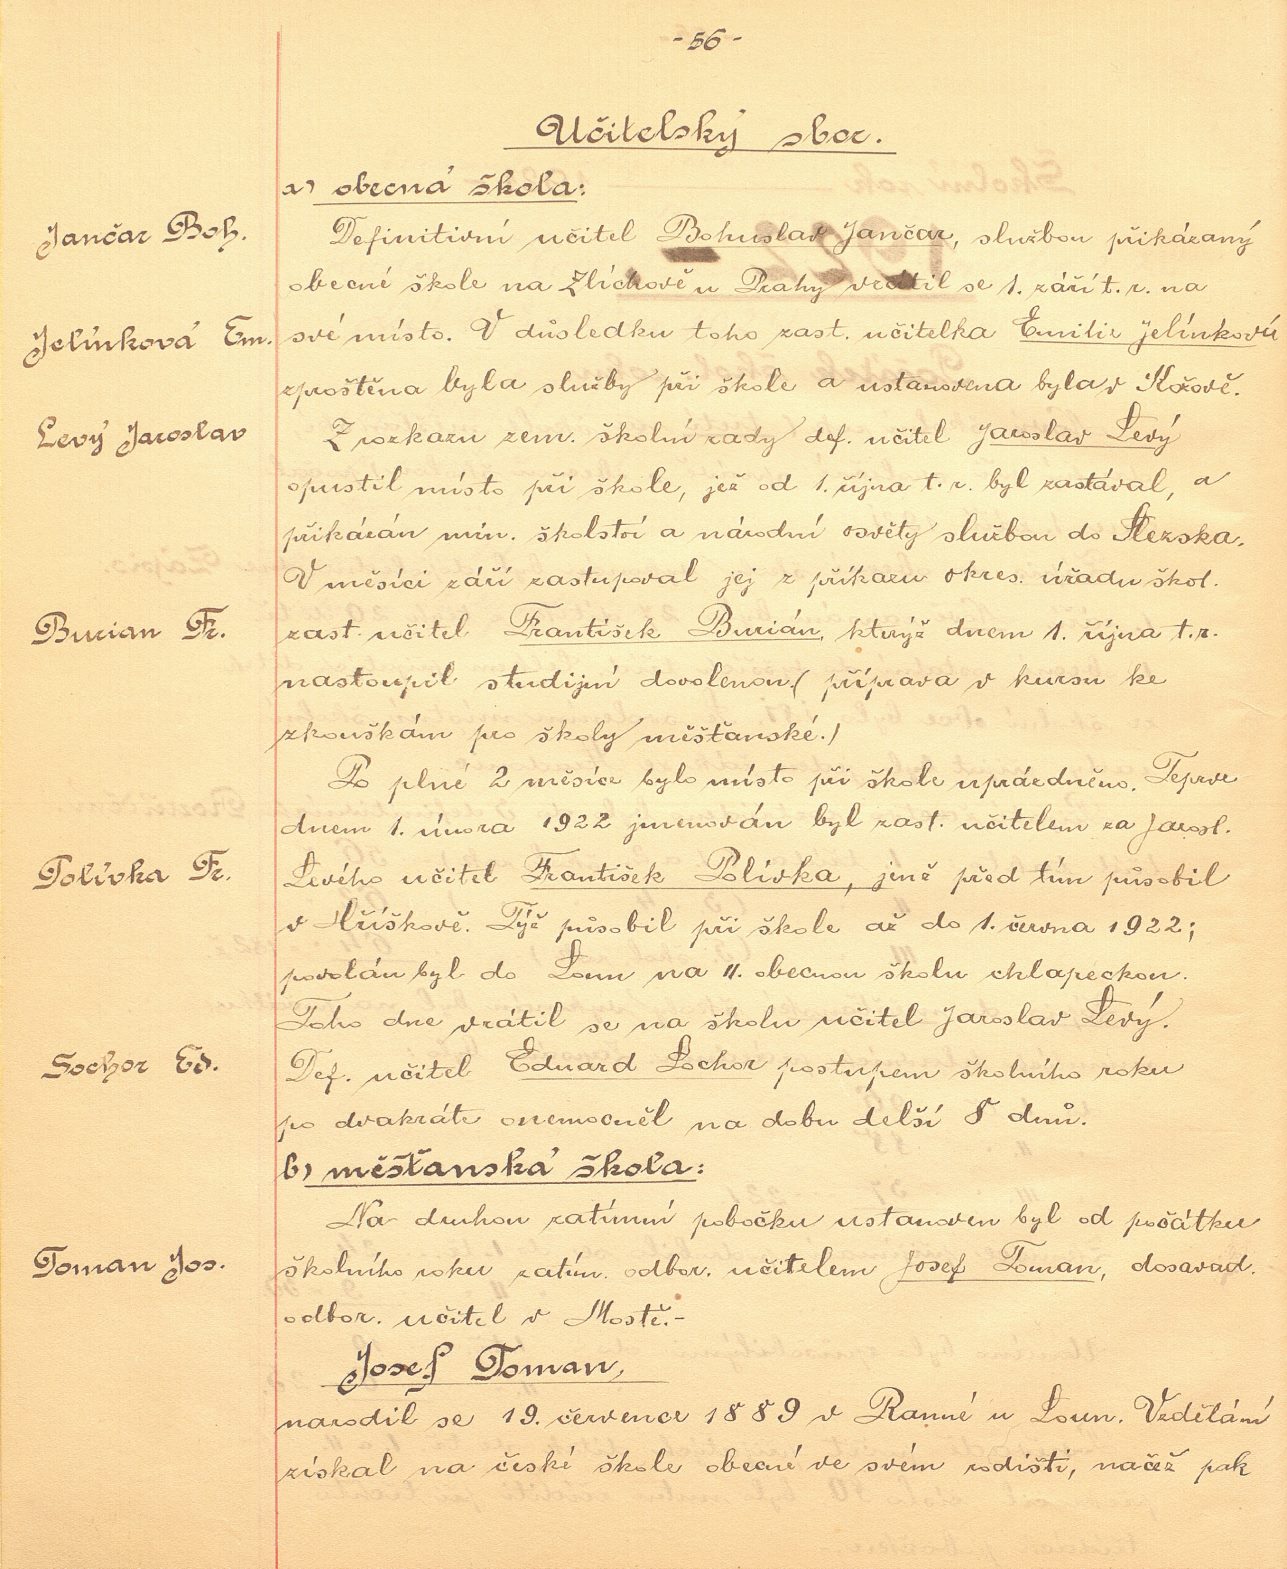 - 56 -
Učitelský sbor.
a) obecná škola:
Jančar Boh.
Definitivní učitel Bohuslav Jančar, službou přikázaný
obecné škole na Zlíchově u Prahy vrátil se 1. září t. r. na
Jelínková Em.
své místo. V důsledku toho zast. učitelka Emilie Jelínková
zproštěna byla služby při škole a ustanovena byla v Kožově.
Levý Jaroslav
Z rozkazu zem. školní rady def. učitel Jaroslav Levý
opustil místo při škole, jež od 1. října t. r. byl zastával, a
přikázán min. školství a národní osvěty službou do Slezska.
V měsíci září zastupoval jej z příkazu okres. úřadu škol.
Burian Fr.
zast. učitel František Burián, kterýž dnem 1. října t. r.
nastoupil studijní dovolenou ( příprava v kursu ke
zkouškám pro školy měšťanské.)
Po plné 2 měsíce bylo místo při škole uprázdněno. Teprve
dnem 1. února 1922 jmenován byl zast. učitelem za Jarosl.
Polívka Fr.
Levého učitel František Polívka, jenž před tím působil
v Hříškově. Týž působil při škole až do 1. června 1922;
povolán byl do Loun na II. obecnou školu chlapeckou.
Toho dne vrátil se na školu učitel Jaroslav Levý.
Sochor Ed.
Def. učitel Eduard Sochor postupem školního roku
po dvakráte onemocněl na dobu delší 8 dnů.
b) měšťanská škola:
Na druhou zatímní pobočku ustanoven byl od počátku
Toman Jos.
školního roku zatím. odbor. učitelem Josef Toman, dosavad.
odbor. učitel v Mostě.-
Josef Toman,
narodil se 19. července 1889 v Ranné u Loun. Vzdělání
získal na české škole obecné ve svém rodišti, načež pak